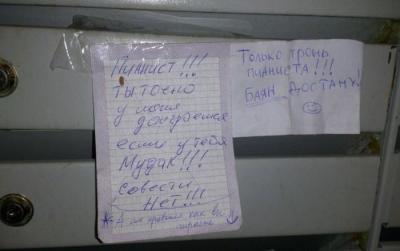 Пианист!!!
ты точно
у меня
доиграешся
если у тебя
Мудак!!!
совести
Нет!!!
А мне нравится как вы
играете
Только тронь
пианиста!!!
Баян достану!